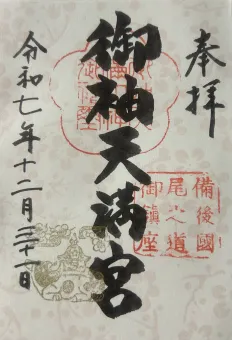 奉拝
備後國
尾の道
御鎮座
御袖天満宮
令和七年十二月三十一日